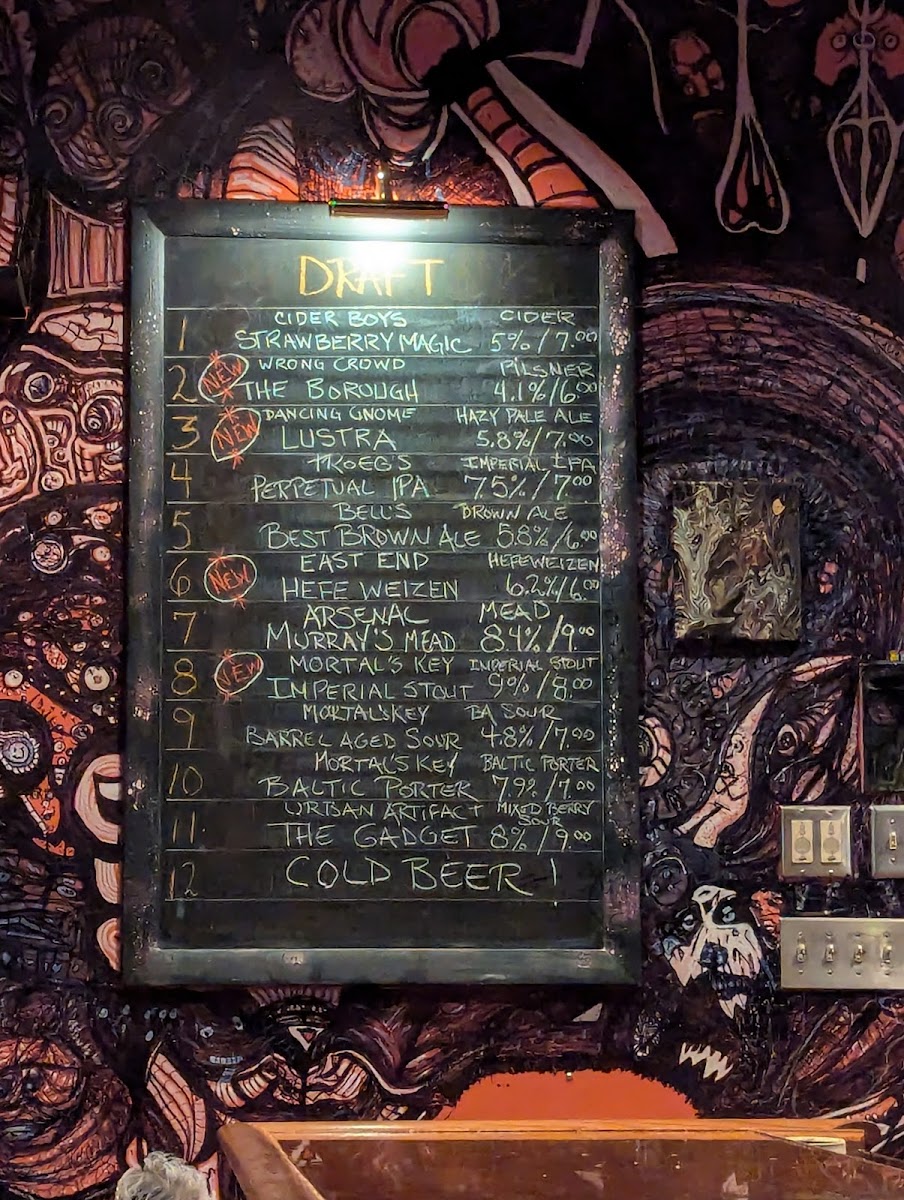 DRAFT
CIDER BOYS CIDER
1 STRAWBERRY MAGIC 5%/7.00
WRONG CROWD PILSNER
2 NEW THE BOROUGH 4.1%/6.00
DANCING GNOME HAZY PALE ALE
3 NEW LUSTRA 5.8%/7.00
TROEG'S IMPERIAL IPA
4 PERPETUAL IPA 7.5%/7.00
BELL'S BROWN ALE
5 BEST BROWN ALE 5.8%/6.00
EAST END HEFEWEIZEN
6 NEW HEFE WEIZEN 6.2%/6.00
ARSENAL MEAD
7 MURRAY'S MEAD 8.4%/9.00
MORTAL'S KEY IMPERIAL STOUT
8 NEW IMPERIAL STOUT 9%/8.00
MORTAL'S KEY BA SOUR
9 BARREL AGED SOUR 4.8%/7.00
MORTAL'S KEY BALTIC PORTER
10 BALTIC PORTER 7.9%/7.00
URBAN ARTIFACT MIXED BERRY SOUR
11. THE GADGET 8%/9.00
12 COLD BEER!